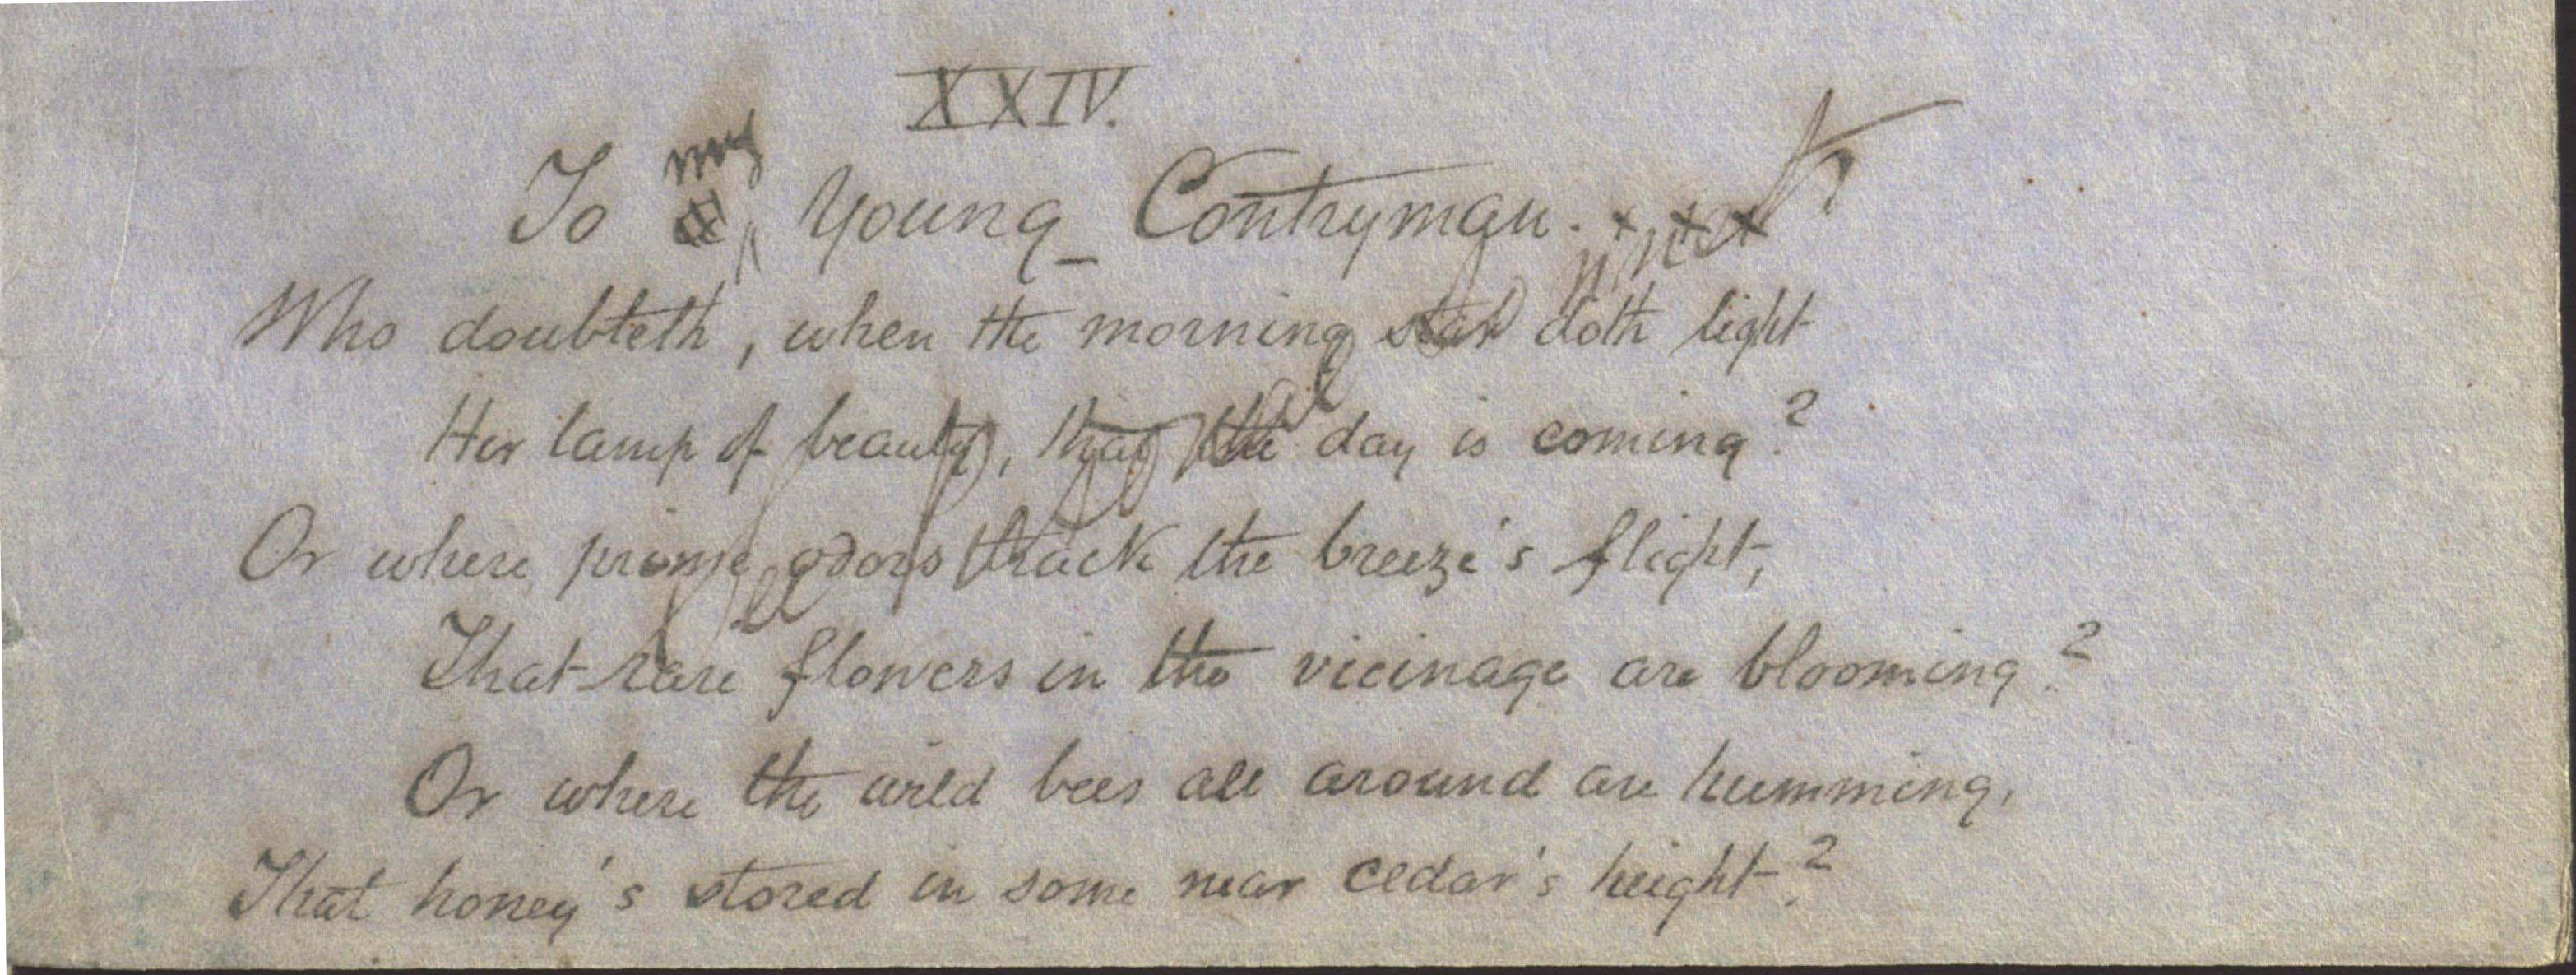 XXIV.
To my Young Contryman. x x x
Who doubteth, when the morning star doth light
Her lamp of beauty, that the day is coming?
Or where prime odors track the breeze's flight,
That rare flowers in the vicinage are blooming?
Or where the wild bees all around are humming,
That honey's stored in some near cedar's height?